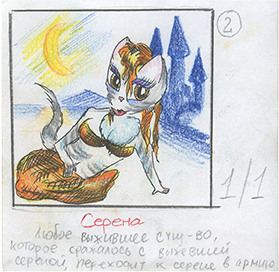 2
1/1
Серена
Любое выжившее сущ-во,
которое сражалось с выжевшей
сереной, переходит к серене в армию